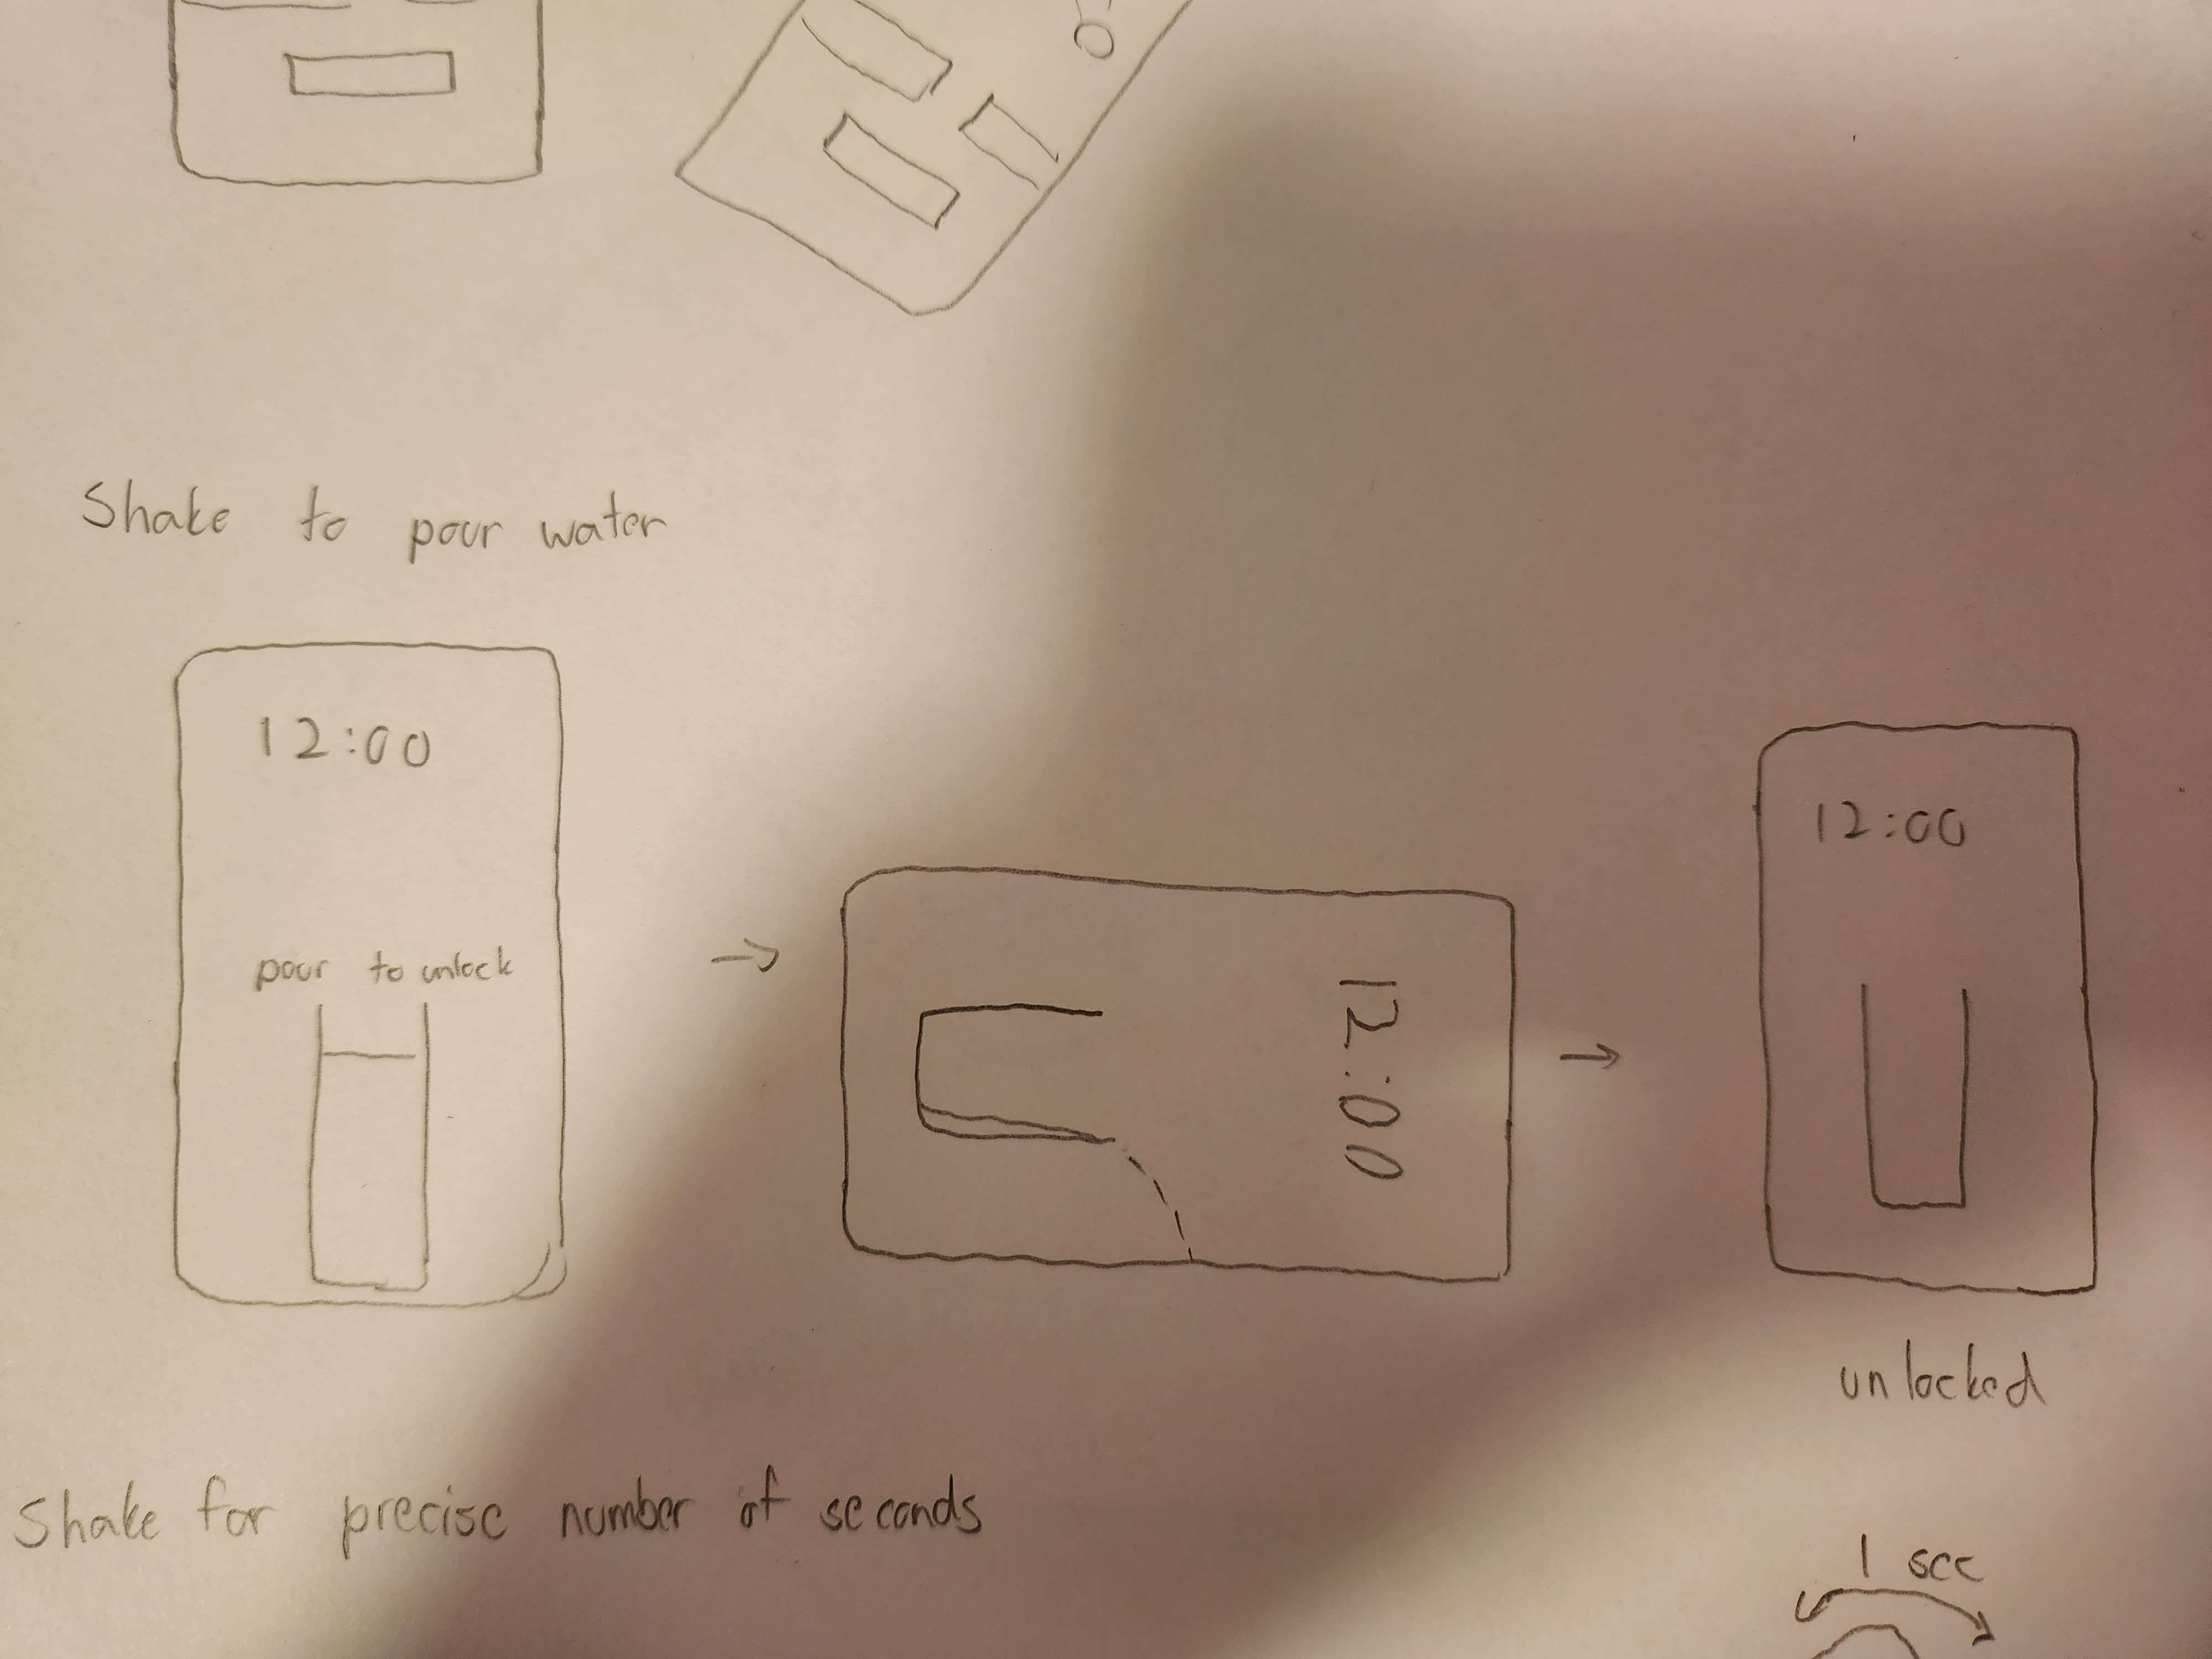 Shake to pour water
12:00
pour to unlock
12:00
12:00
unlocked
Shake for precise number of seconds
1 sec